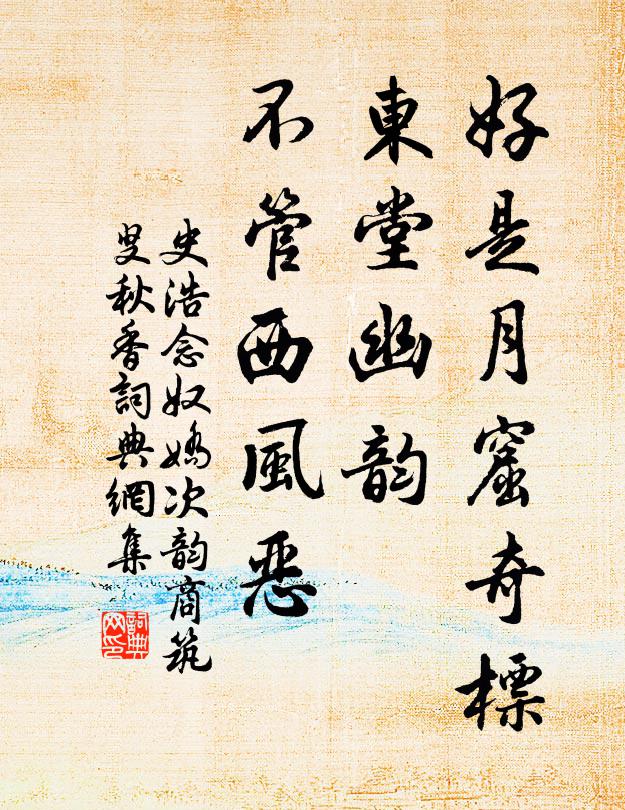 好是月窟奇標
東堂幽韵
不管西風惡
史浩念奴嬌次韵商筑
叟秋香詞典網集
詞典
网印